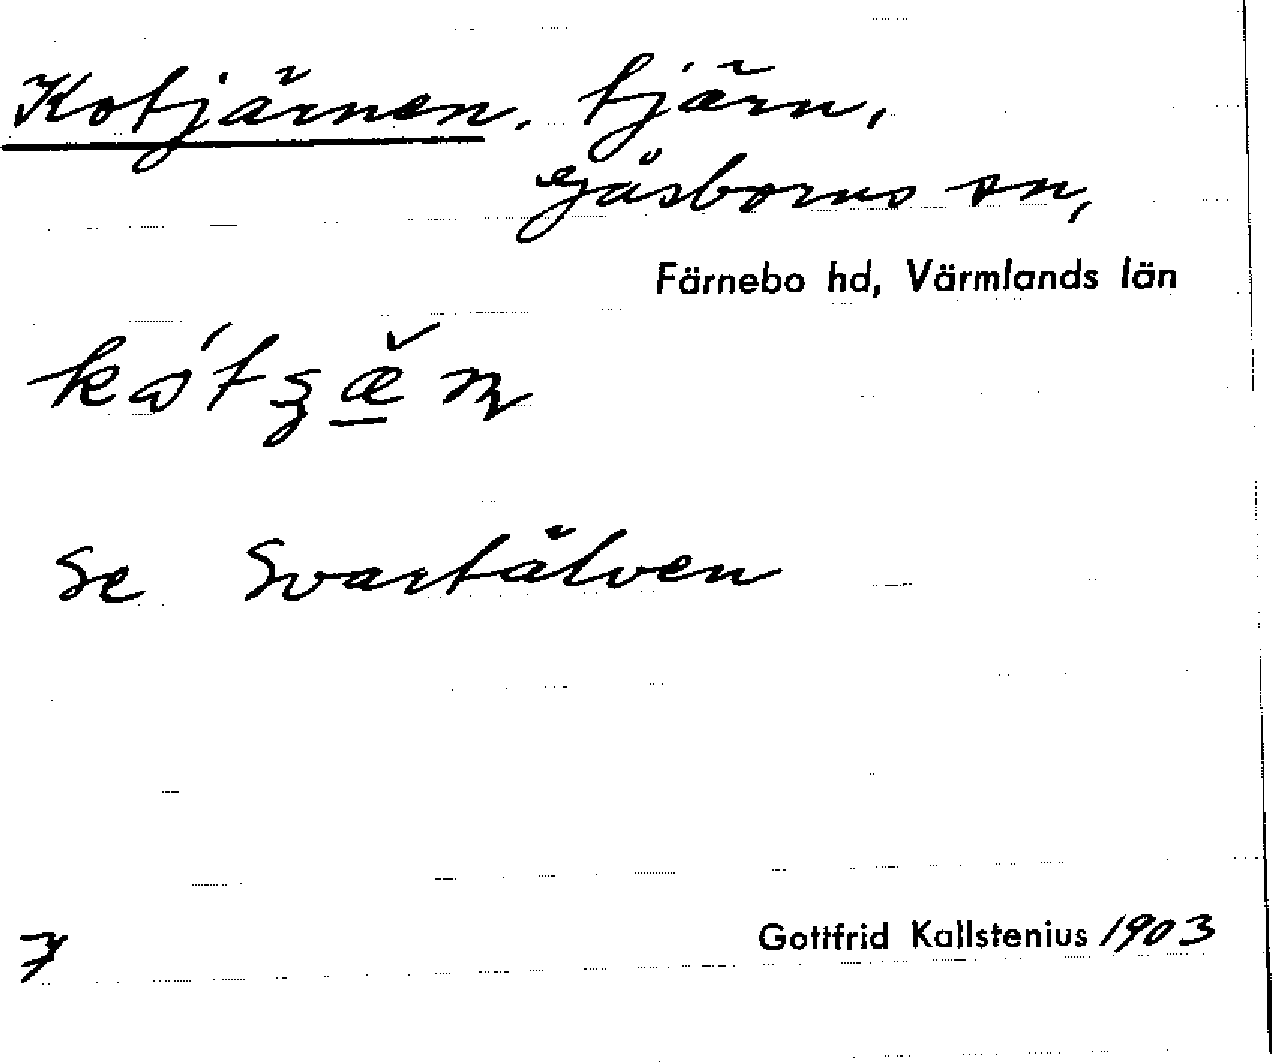 Kotjärnen, tjärn,
Gåsborns sn,
Färnebo hd, Värmlands län
Se Svartälven
7
Gottfrid Kallstenius 1903